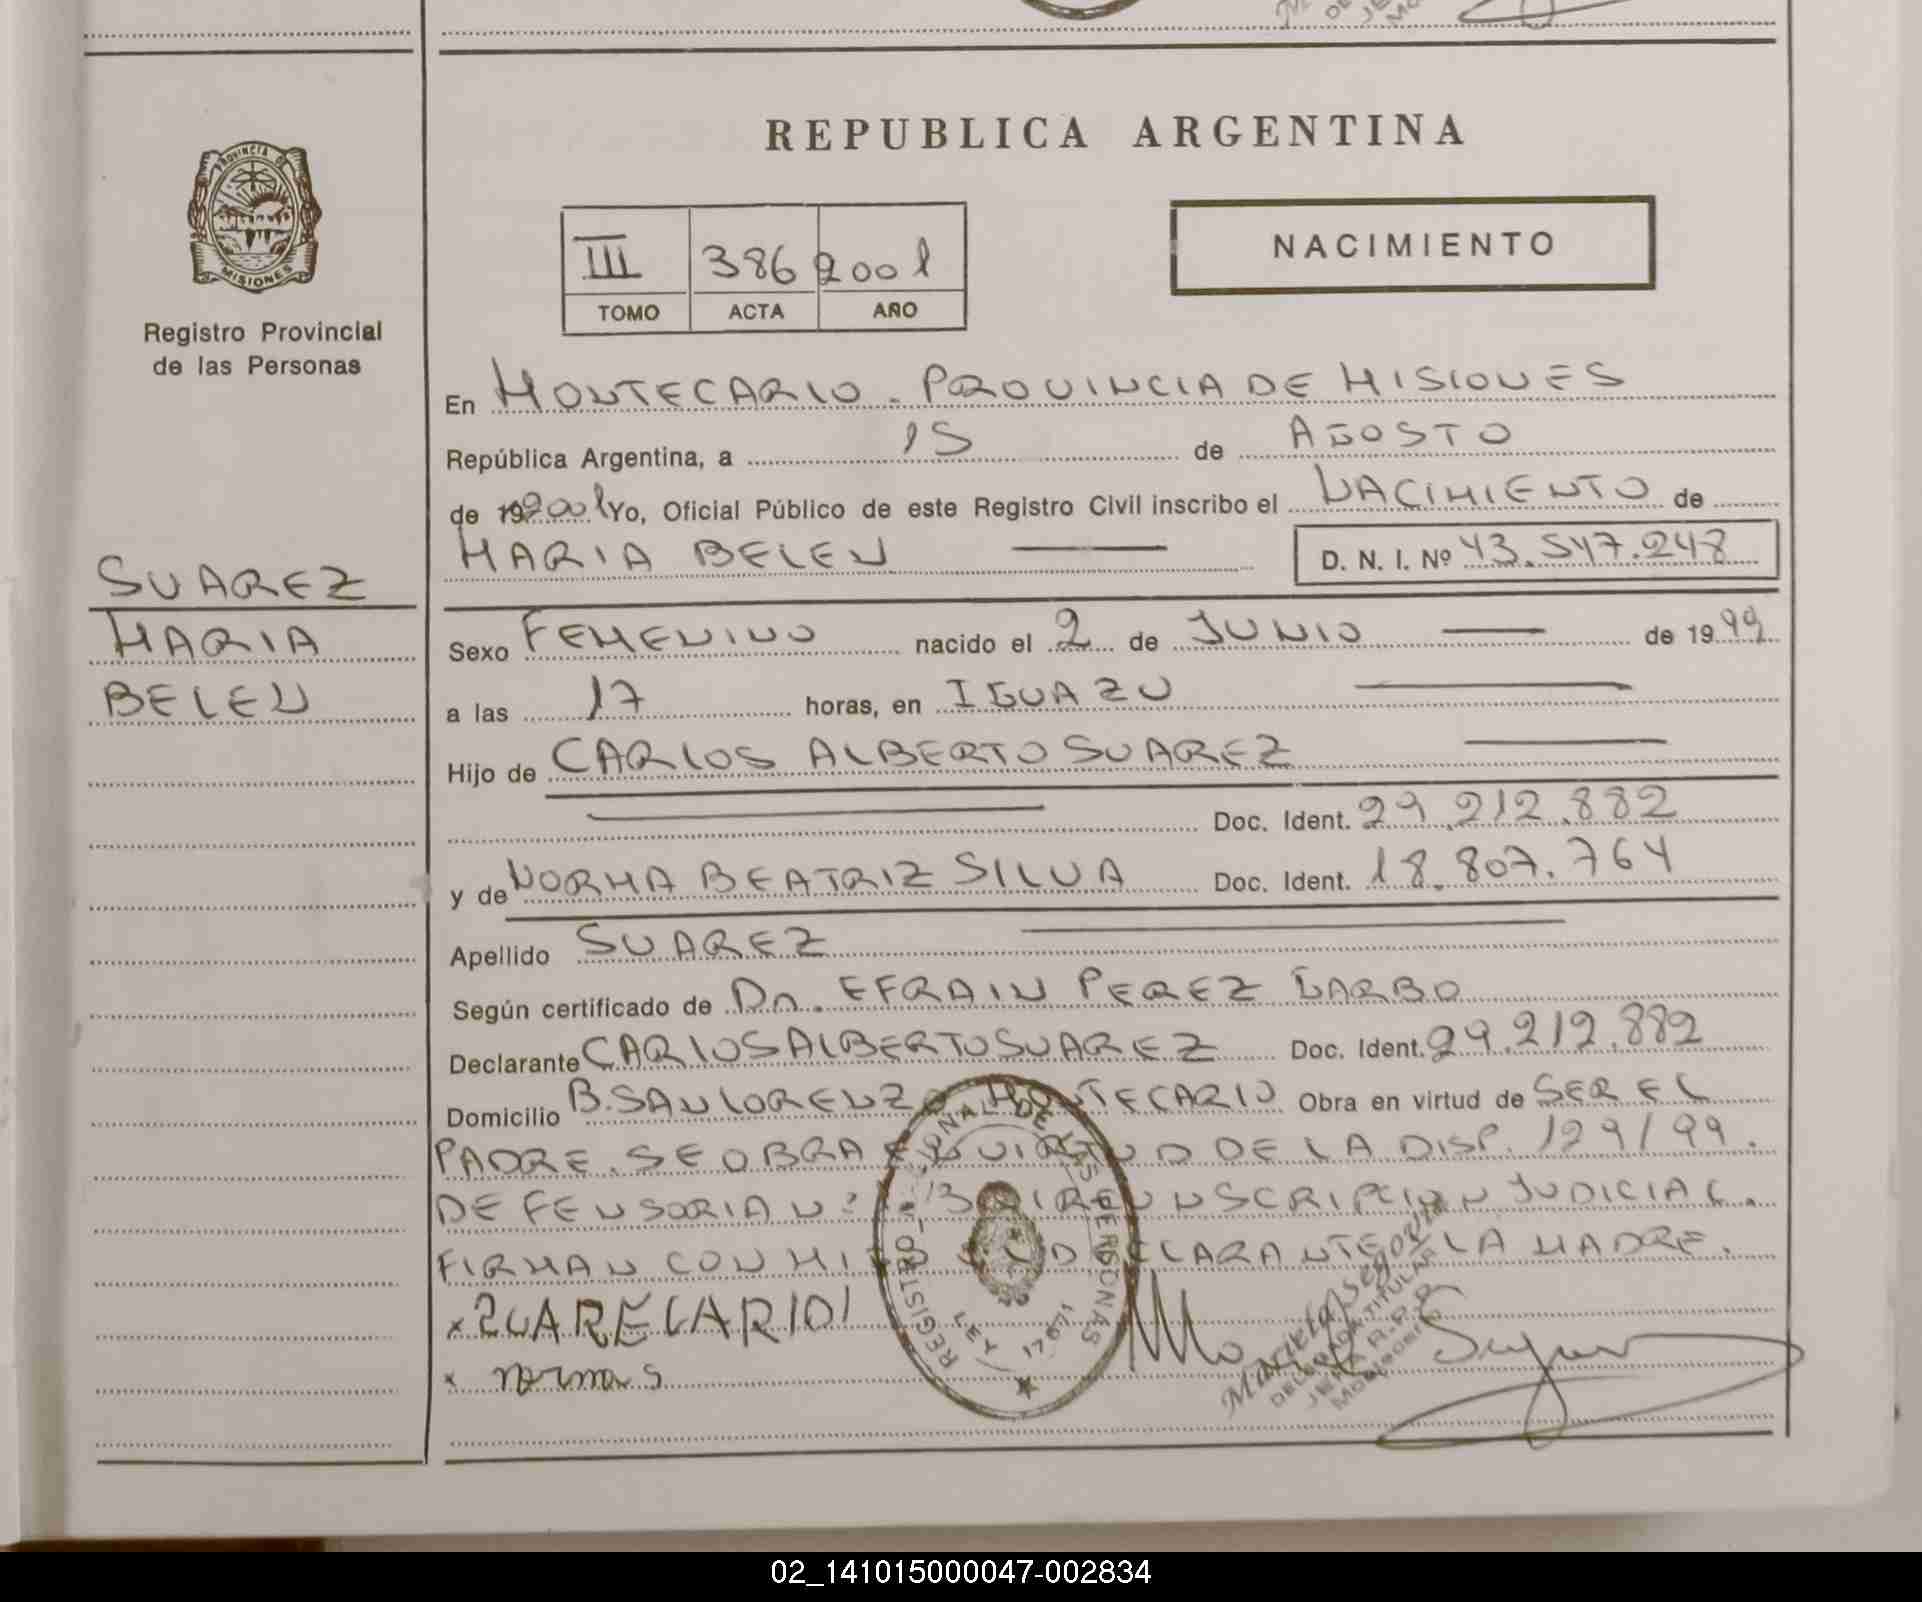 REPUBLICA ARGENTINA
PROVINCIA DE
MISIONES
Registro Provincial
de las Personas
III 386 2001
TOMO ACTA AÑO
NACIMIENTO
En MONTECARLO - PROVINCIA DE MISIONES
República Argentina, a 15 de AGOSTO
de 192001 Yo, Oficial Público de este Registro Civil inscribo el NACIMIENTO de
MARIA BELEN D. N. I. Nº 43.547.248
SUAREZ
MARIA
BELEN
Sexo FEMENINO nacido el 2 de JUNIO de 1999
a las 17 horas, en IGUAZU
Hijo de CARLOS ALBERTO SUAREZ
Doc. Ident. 29.212.882
y de NORMA BEATRIZ SILVA Doc. Ident. 18.807.764
Apellido SUAREZ
Según certificado de Dr. EFRAIN PEREZ GARBO
Declarante CARLOS ALBERTO SUAREZ Doc. Ident. 29.212.882
Domicilio B. SAN LORENZO MONTECARLO Obra en virtud de SER EL
PADRE. SE OBRA EN VIRTUD DE LA DISP. 129/99.
DEFENSORIA Nº 1 3 CIRCUNSCRIPCION JUDICIAL.
FIRMAN CONMIGO EL DECLARANTE Y LA MADRE.
x 2UARECARlOl
x norma s
REGISTRO NACIONAL DE LAS PERSONAS
LEY 17671
DELEGADA TITULAR
JEFA R.P.P.
02_141015000047-002834